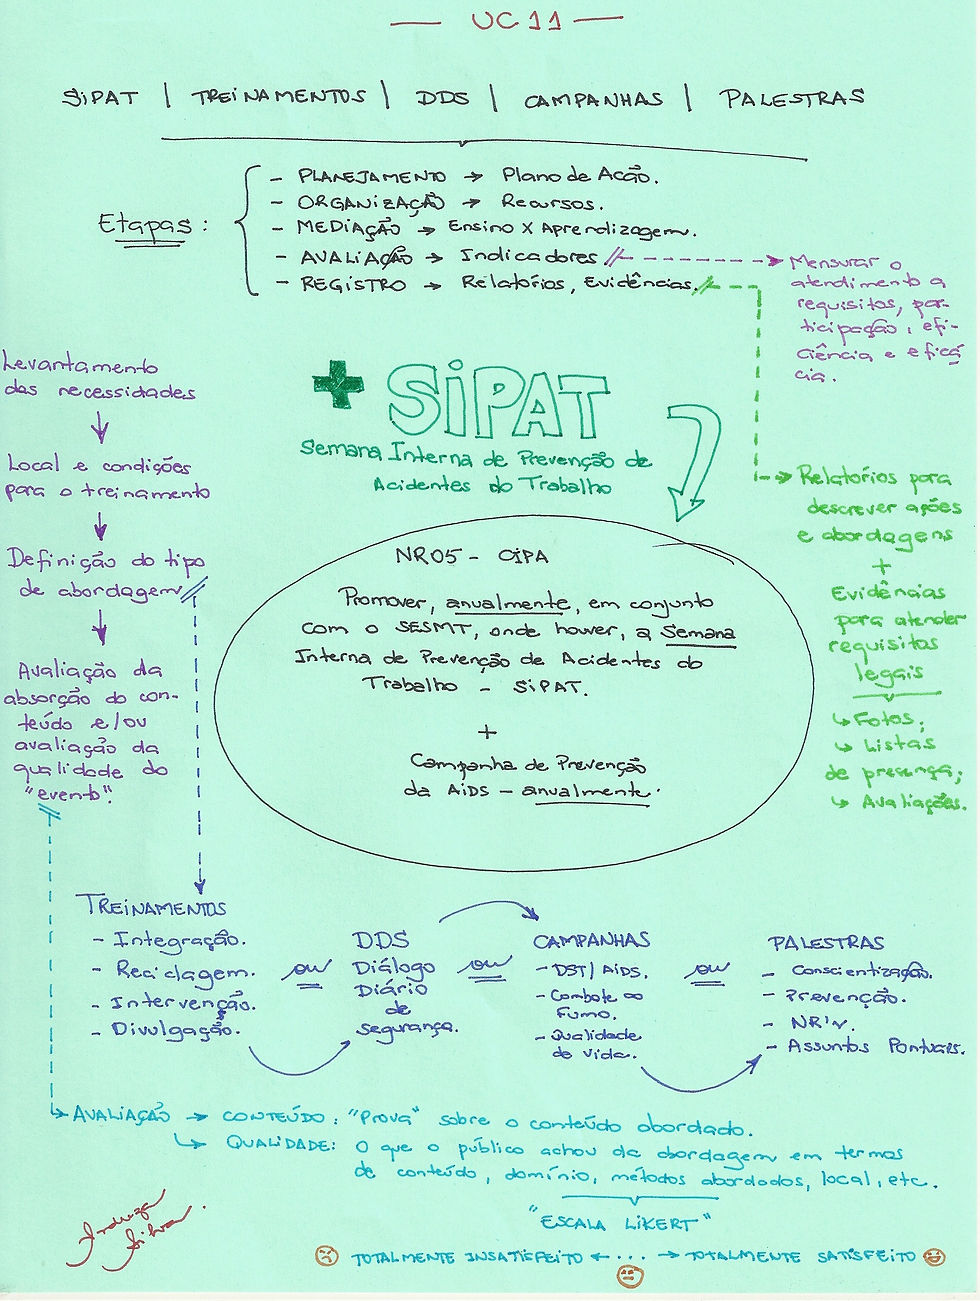 UC 11
SiPAT | TREiNAMENTOS | DDS | CAMPANHAS | PALESTRAS
Etapas:
- PLANEJAMENTO → Plano de Acão.
- ORGANiZAÇÃO → Recursos.
- MEDiAÇÃO → Ensino X Aprendizagem.
- AVALiAÇÃO → Indicadores
- REGiSTRO → Relatórios, Evidências.
Mensurar o
atendimento a
requisitos, par-
ticipação, efi-
ciência e eficá
cia.
Levantamento
das necessidades
Local e condições
para o treinamento
Definição do tipo
de abordagem
Avaliação da
absorção do con-
teúdo e/ou
avaliação da
qualidade do
"evento".
+ SiPAT
Semana Interna de Prevenção de
Acidentes do Trabalho
NR05 - CiPA
Promover, anualmente, em conjunto
com o SESMT, onde houver, a Semana
Interna de Prevenção de Acidentes do
Trabalho - SiPAT.
+
Campanha de Prevenção
da AiDS - anualmente.
Relatórios para
descrever ações
e abordagens
+
Evidências
para atender
requisitos
legais
↳ Fotos;
↳ Listas
de presença;
↳ Avaliações.
TREiNAMENTOS
- Integração.
- Reciclagem.
- Intervenção.
- Divulgação.
ou
DDS
Diálogo
Diário
de
segurança.
ou
CAMPANHAS
- DST/AiDS.
- Combate ao
Fumo.
- Qualidade
de vida.
ou
PALESTRAS
- Conscientização.
- Prevenção.
- NR's.
- Assuntos Pontuais.
AVALiAÇÃO → CONTEÚDO: "Prova" sobre o conteúdo abordado.
↳ QUALiDADE: O que o público achou da abordagem em termos
de conteúdo, domínio, métodos abordados, local, etc.
"ESCALA LiKERT"
TOTALMENTE INSATiSFEiTO ← ... → TOTALMENTE SATiSFEiTO
Silva